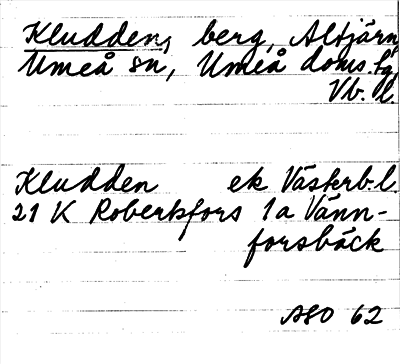 Kludden, berg, Altjärn,
Umeå sn, Umeå doms. fg,
Vb. l.
Kludden ek Västerb. l.
21 K Robertsfors 1a Vänn-
forsbäck
ASO 62